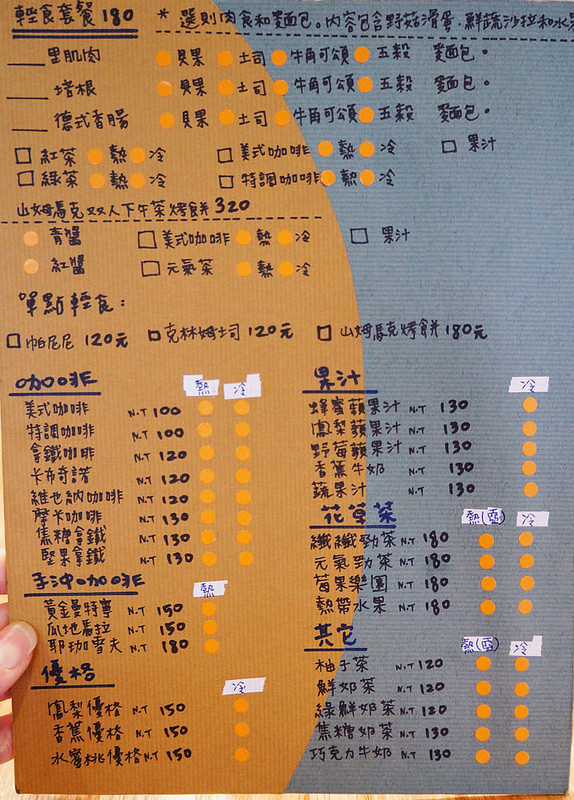 輕食套餐 180 * 選則肉食和麵包。內容包含野菇滑蛋.鮮蔬沙拉和水果
里肌肉 貝果 土司 牛角可頌 五穀 麵包。
培根 貝果 土司 牛角可頌 五穀 麵包。
德式香腸 貝果 土司 牛角可頌 五穀 麵包。
紅茶 熱 冷 美式咖啡 熱 冷 果汁
綠茶 熱 冷 特調咖啡 熱 冷
山姆馬克双人下午茶烤餅 320
青醬 美式咖啡 熱 冷 果汁
紅醬 元氣茶 熱 冷
單點輕食:
帕尼尼 120元 克林姆土司 120元 山姆馬克烤餅 180元
咖啡 熱 冷
美式咖啡 N.T 100
特調咖啡 N.T 100
拿鐵咖啡 N.T 120
卡布奇諾 N.T 120
維也納咖啡 N.T 120
摩卡咖啡 N.T 130
焦糖拿鐵 N.T 130
堅果拿鐵 N.T 130
手沖咖啡 熱
黃金曼特寧 N.T 150
瓜地馬拉 N.T 150
耶珈雪夫 N.T 180
優格 冷
鳳梨優格 N.T 150
香蕉優格 N.T 150
水蜜桃優格 N.T 150
果汁 冷
蜂蜜蘋果汁 N.T 130
鳳梨蘋果汁 N.T 130
野莓蘋果汁 N.T 130
香蕉牛奶 N.T 130
蔬果汁 N.T 130
花草茶 熱(壺) 冷
纖纖勁茶 N.T 180
元氣勁茶 N.T 180
莓果樂園 N.T 180
熱帶水果 N.T 180
其它 熱(壺) 冷
柚子茶 N.T 120
鮮奶茶 N.T 120
綠鮮奶茶 N.T 120
焦糖奶茶 N.T 130
巧克力牛奶 N.T 130